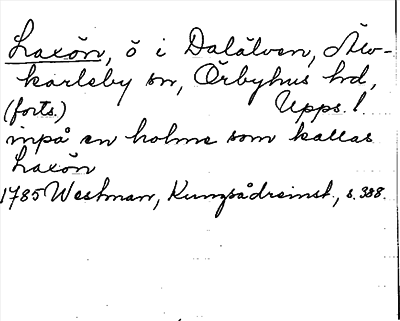 Laxön, ö i Dalälven, Älv-
karleby sn, Örbyhus hd,
(forts.) Upps. l.
inpå en holme som kallas
Laxön
1785 Westman, Kungsådreinst., s. 388.